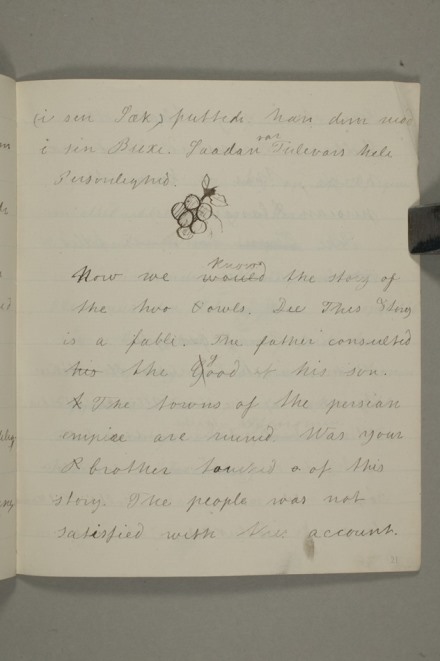 (i sin Sæk) puttede han dem ned
i sin Buxe. Saadan var Tulevars hele
Personlighed.
Now we would knows the story of
the two Oowls. Dee This Story
is a fable. The father consulted
his the good of his son.
The towns of the persian
empice are ruined Was your
brother of this
story. The people was not
satisfied with this account.